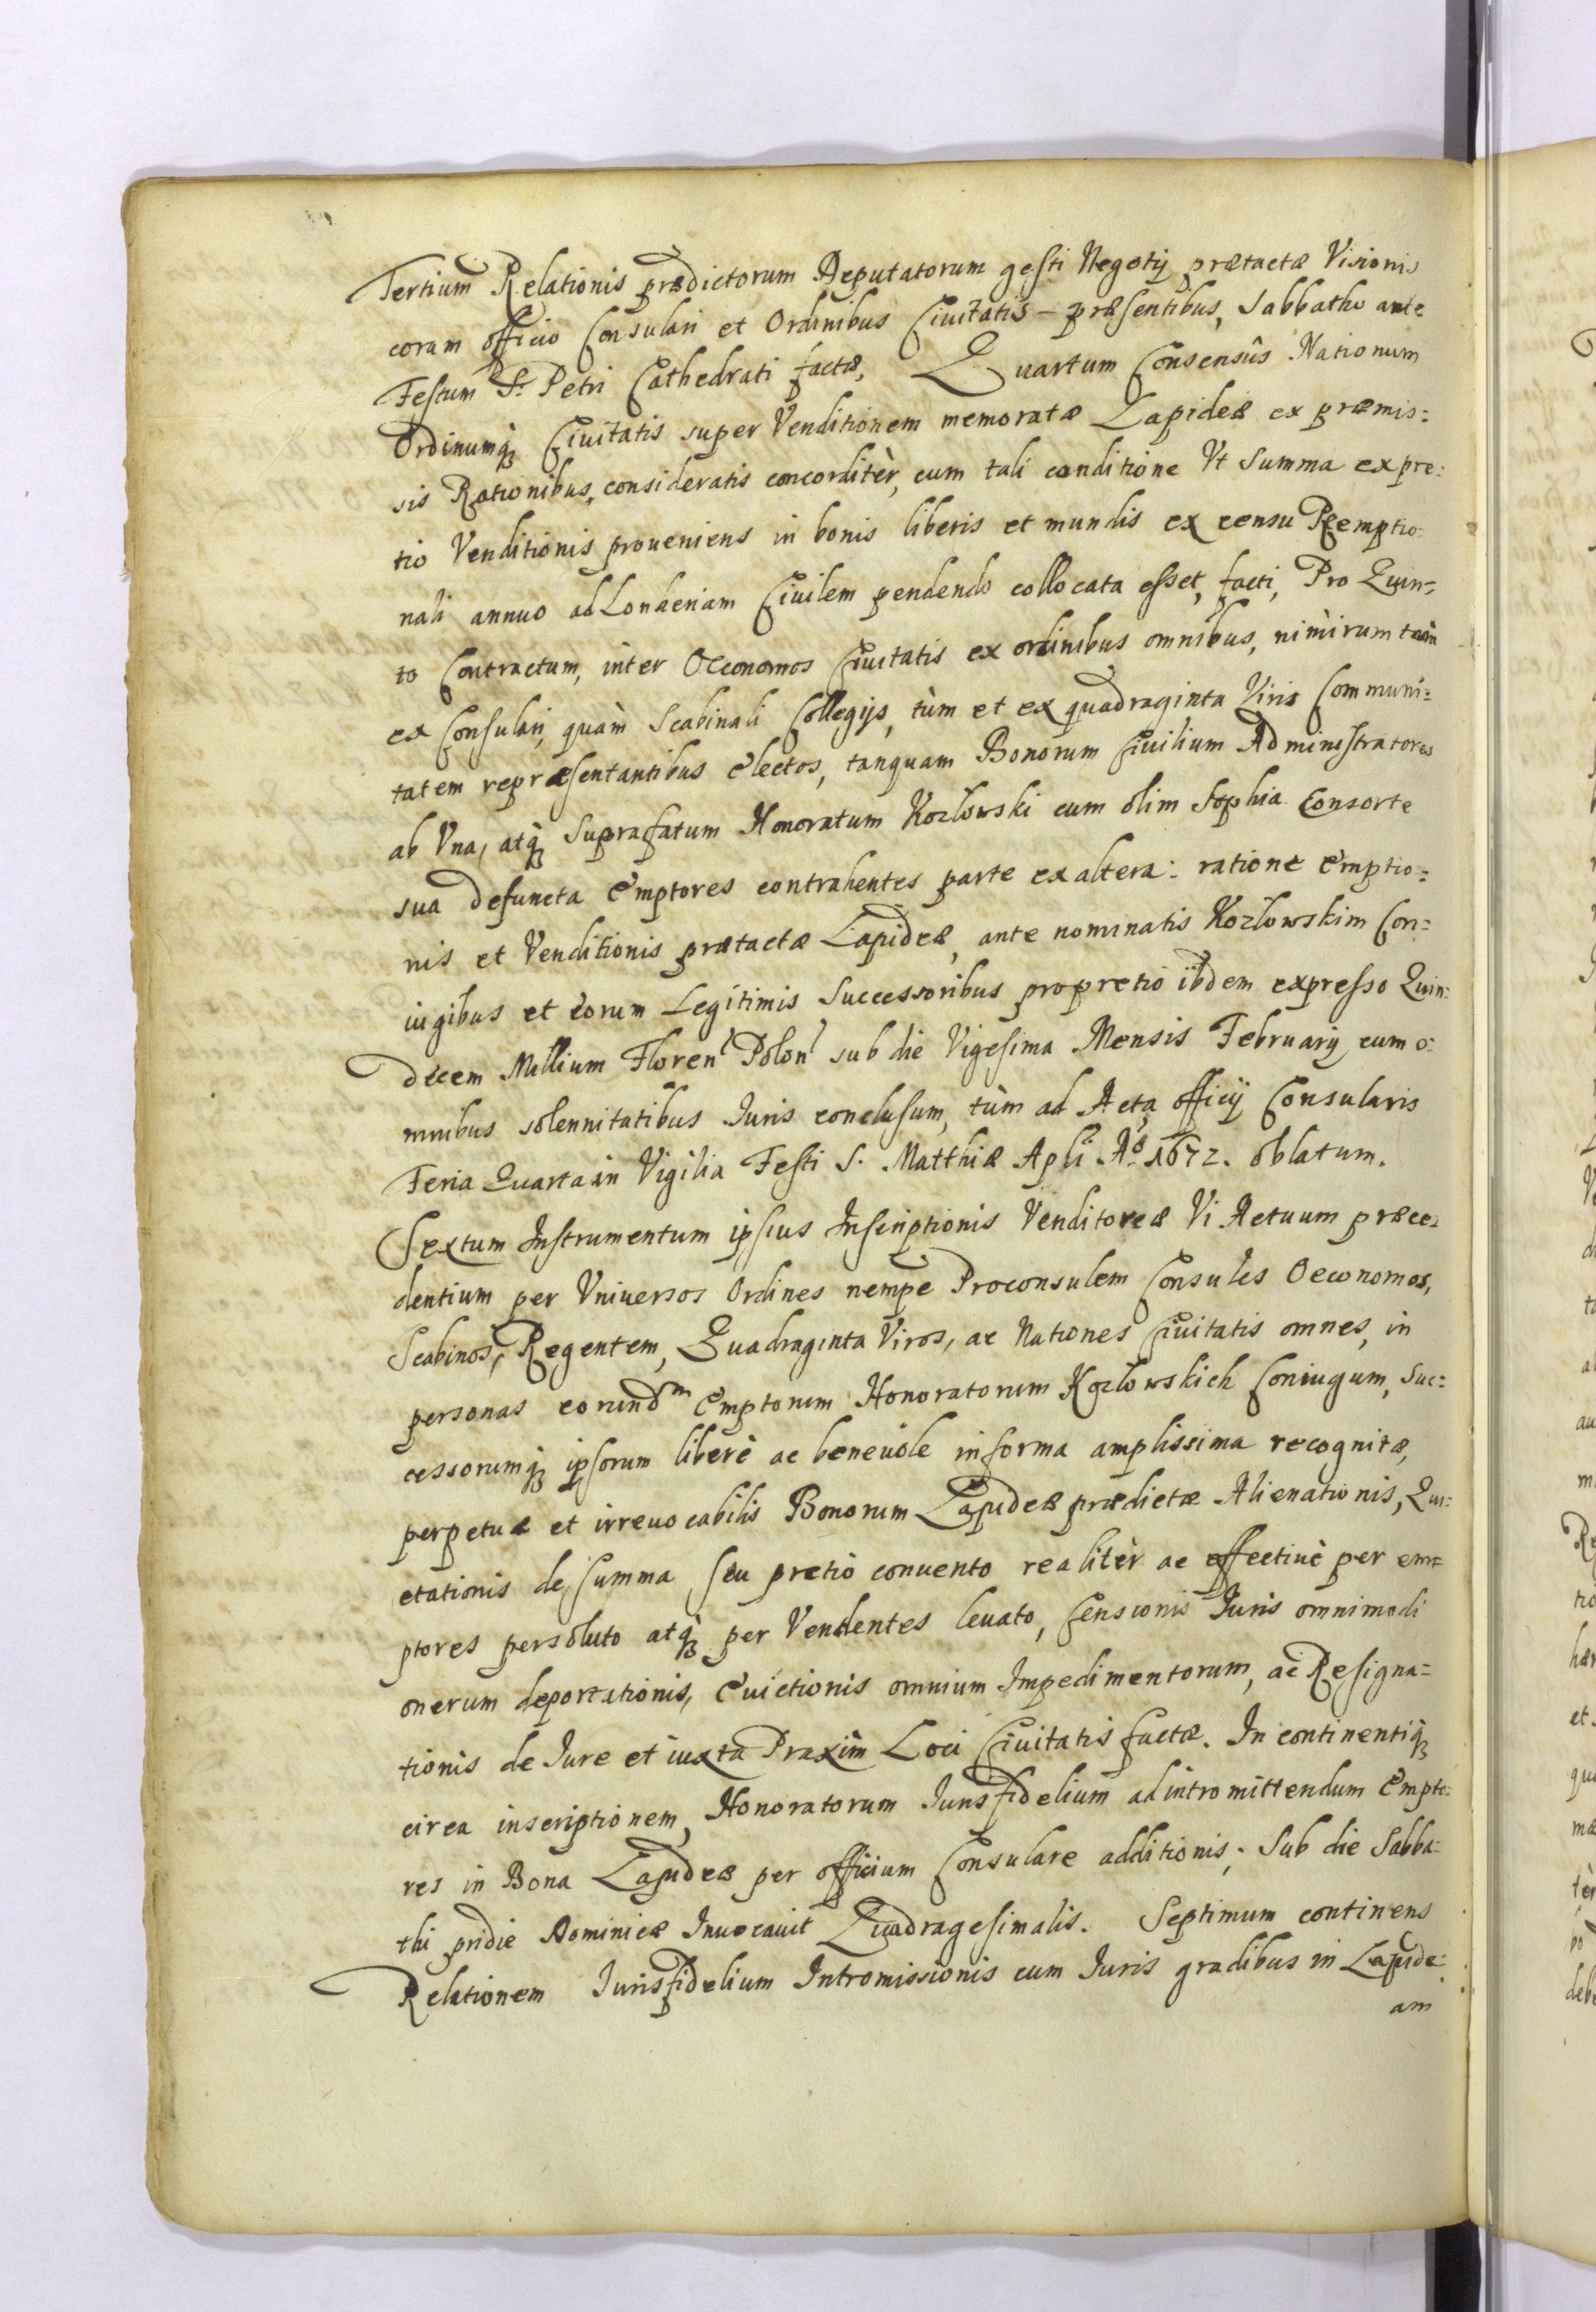 Tertium Relationis prædictorum Deputatorum gesti Negotij prætactæ Visionis
coram officio Consulari et Ordinibus Civitatis – præsentibus, Sabbatho ante
Festum S. Petri Cathedrati factæ, Quartum Consensûs Nationum
Ordinumq; Civitatis super Venditionem memoratæ Lapideæ ex præmis:
sis Rationibus, consideratis concorditèr, cum tali conditione Vt Summa ex pre:
tio Venditionis proueniens in bonis liberis et mundis ex censu Reemptio:
nali annuo ad Lonheriam Ciuilem pendendo collocata esset, facti, Pro Quin=
to Contractum, inter Oeconomos Ciuitatis ex ordinibus omnibus, nimirum tam
ex Consulari, quàm Scabinali Collegijs, tùm et ex quadraginta Viris Communi=
tatem repræsentantibus Electos, tanquam Bonorum Ciuilium Administratores
ab Vna, atq; Suprafatum Honoratum Kozlowski cum olim Sophia Consorte
sua defuncta Emptores contrahentes parte ex altera: ratione Emptio=
nis et Venditionis prætactæ Lapideæ, ante nominatis Kozlowskim Con=
iugibus et eorum Legitimis Successoribus pro pretio ibidem expresso Quin:
decem Millium Floren Polon sub die Vigesima Mensis February, cum o:
mnibus solennitatibus Iuris conclusum, tùm ad Acta officij Consularis
Feria Quarta in Vigilia Festi S. Matthiæ Apli Aº 1672. oblatum.
Sextum Instrumentum ipsius Inscriptionis Venditoreæ Vi Actuum præce=
dentium per Vniuersos Ordines nempe Proconsulem Consules Oeconomos,
Scabinos, Regentem, Quadraginta Viros, ac Nationes Ciuitatis omnes, in
personas eorundm Emptorum Honoratorum Kozlowskich Coniugum, Suc=
cessorumq; ipsorum liberè ac beneuole in forma amplissima recognitæ,
perpetuæ et irreuocabilis Bonorum Lapideæ prædictæ Alienationis, Qui:
etationis de Summa seu pretio conuento realitèr ac effectiuè per em=
ptores persoluto atq; per Vendentes leuato, Censionis Iuris omnimodi
onerum deportationis, Euictionis omnium Impedimentorum, ac Resigna=
tionis de Iure et iuxta Praxim Loci Ciuitatis factæ. In continentiq;
circa inscriptionem, Honoratorum Iurisfidelium ad intromittendum Empto:
res in Bona Lapideæ per officium Consulare additionis; Sub die Sabba=
thi pridie Dominicæ Inuocauit Quadragesimalis. Septimum continens
Relationem Iurisfidelium Intromissionis cum Iuris gradibus in Lapide:
am